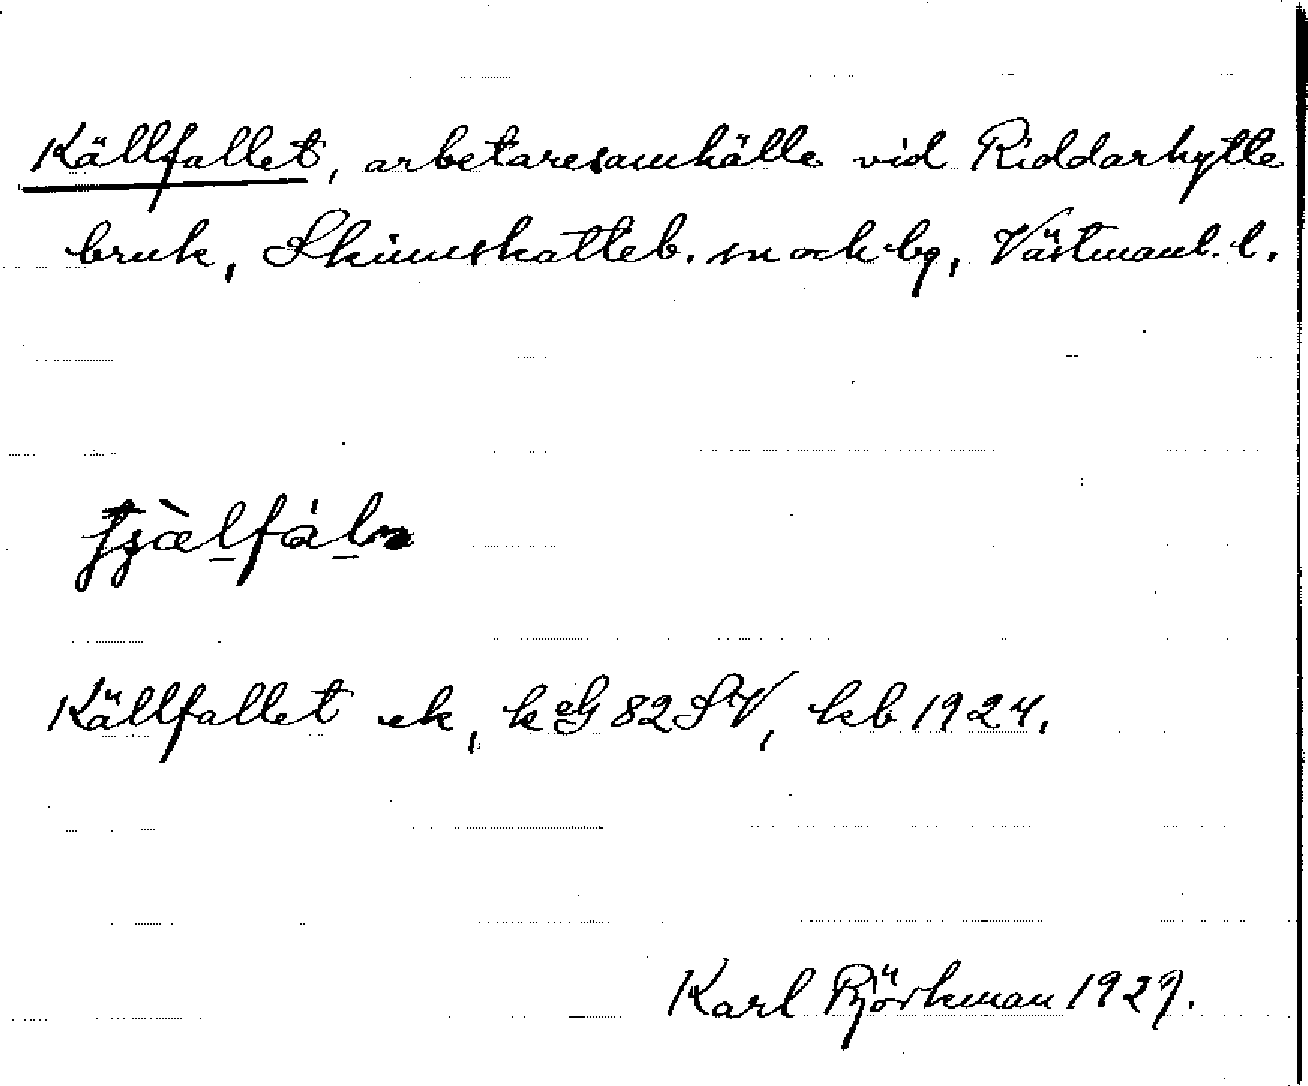 Källfallet, arbetaresamhälle vid Riddarhytte
bruk, Skinnskatteb. sn och bg, Västmanl. l.
Källfallet ek, k eG 82 SV, kb 1924.
Karl Björkman 1929.